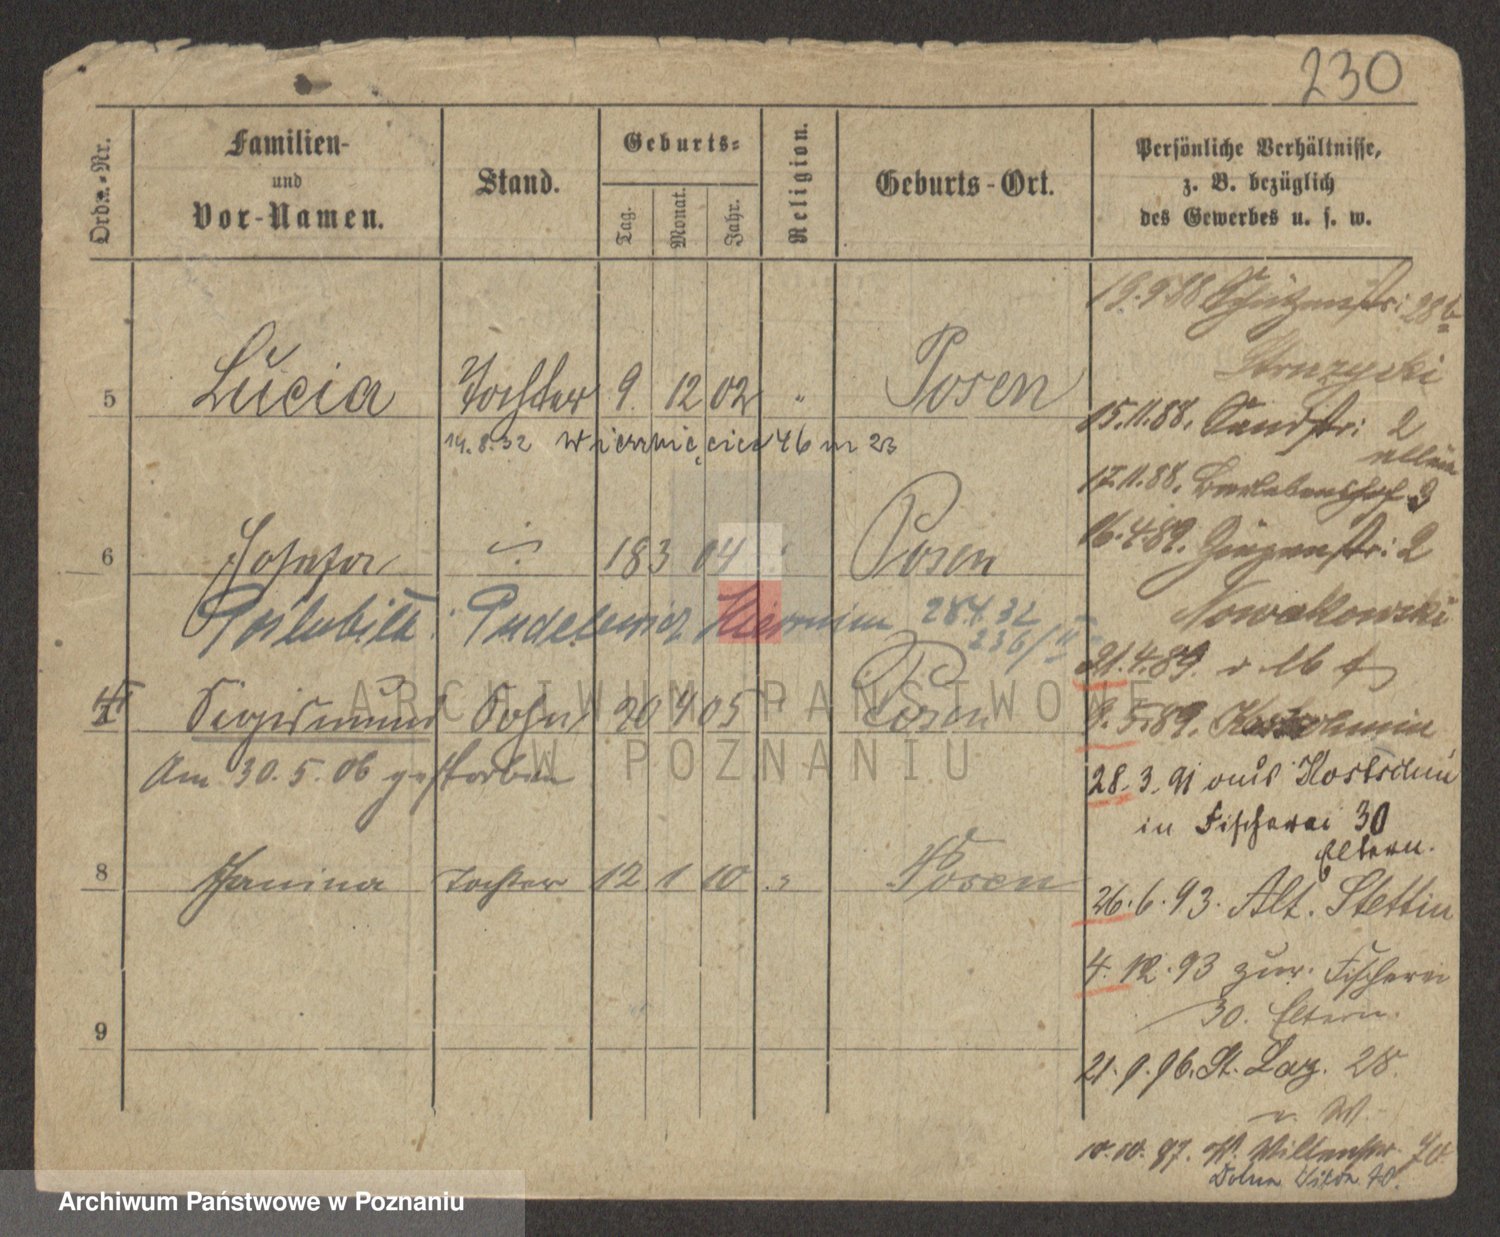 230
Ordn.-Nr.
Familien-
und
Vor-Namen.
Stand.
Geburts-
Tag.
Monat.
Jahr.
Religion.
Geburts-Ort.
Persönliche Verhältnisse,
z. B. bezüglich
des Gewerbes u. s. w.
5 Lucia Tochter 9. 12 02 " Posen
14.8.32 46 m 23
6 Josefa 18 3 04 Posen
Poślubiła 28 4 32
236/II
7 Sigismund Sohn 20 4 05 " Posen
Am 30.5.06 gestorben
8 Janina Tochter 12 1 10 " Posen
9
19.9.88 Schützenstr: 28b
15.11.88. Sandstr: 2
allein
17.11.88. 3
16.4.89. 2
Nowakowski
21.4.89. v. 16
9.5.89. Kostschin
28.3.91 aus Kostschin
in Fischerei 30
Eltern.
26.6.93. Alt. Stettin
4.12.93 zur. Fischerei
30. Eltern.
21.9.96. St. Laz. 28.
v. W
10.10.97. W. 70.
Dolna Wilda 70.
ARCHIWUM PAŃSTWOWE
W POZNANIU
Archiwum Państwowe w Poznaniu